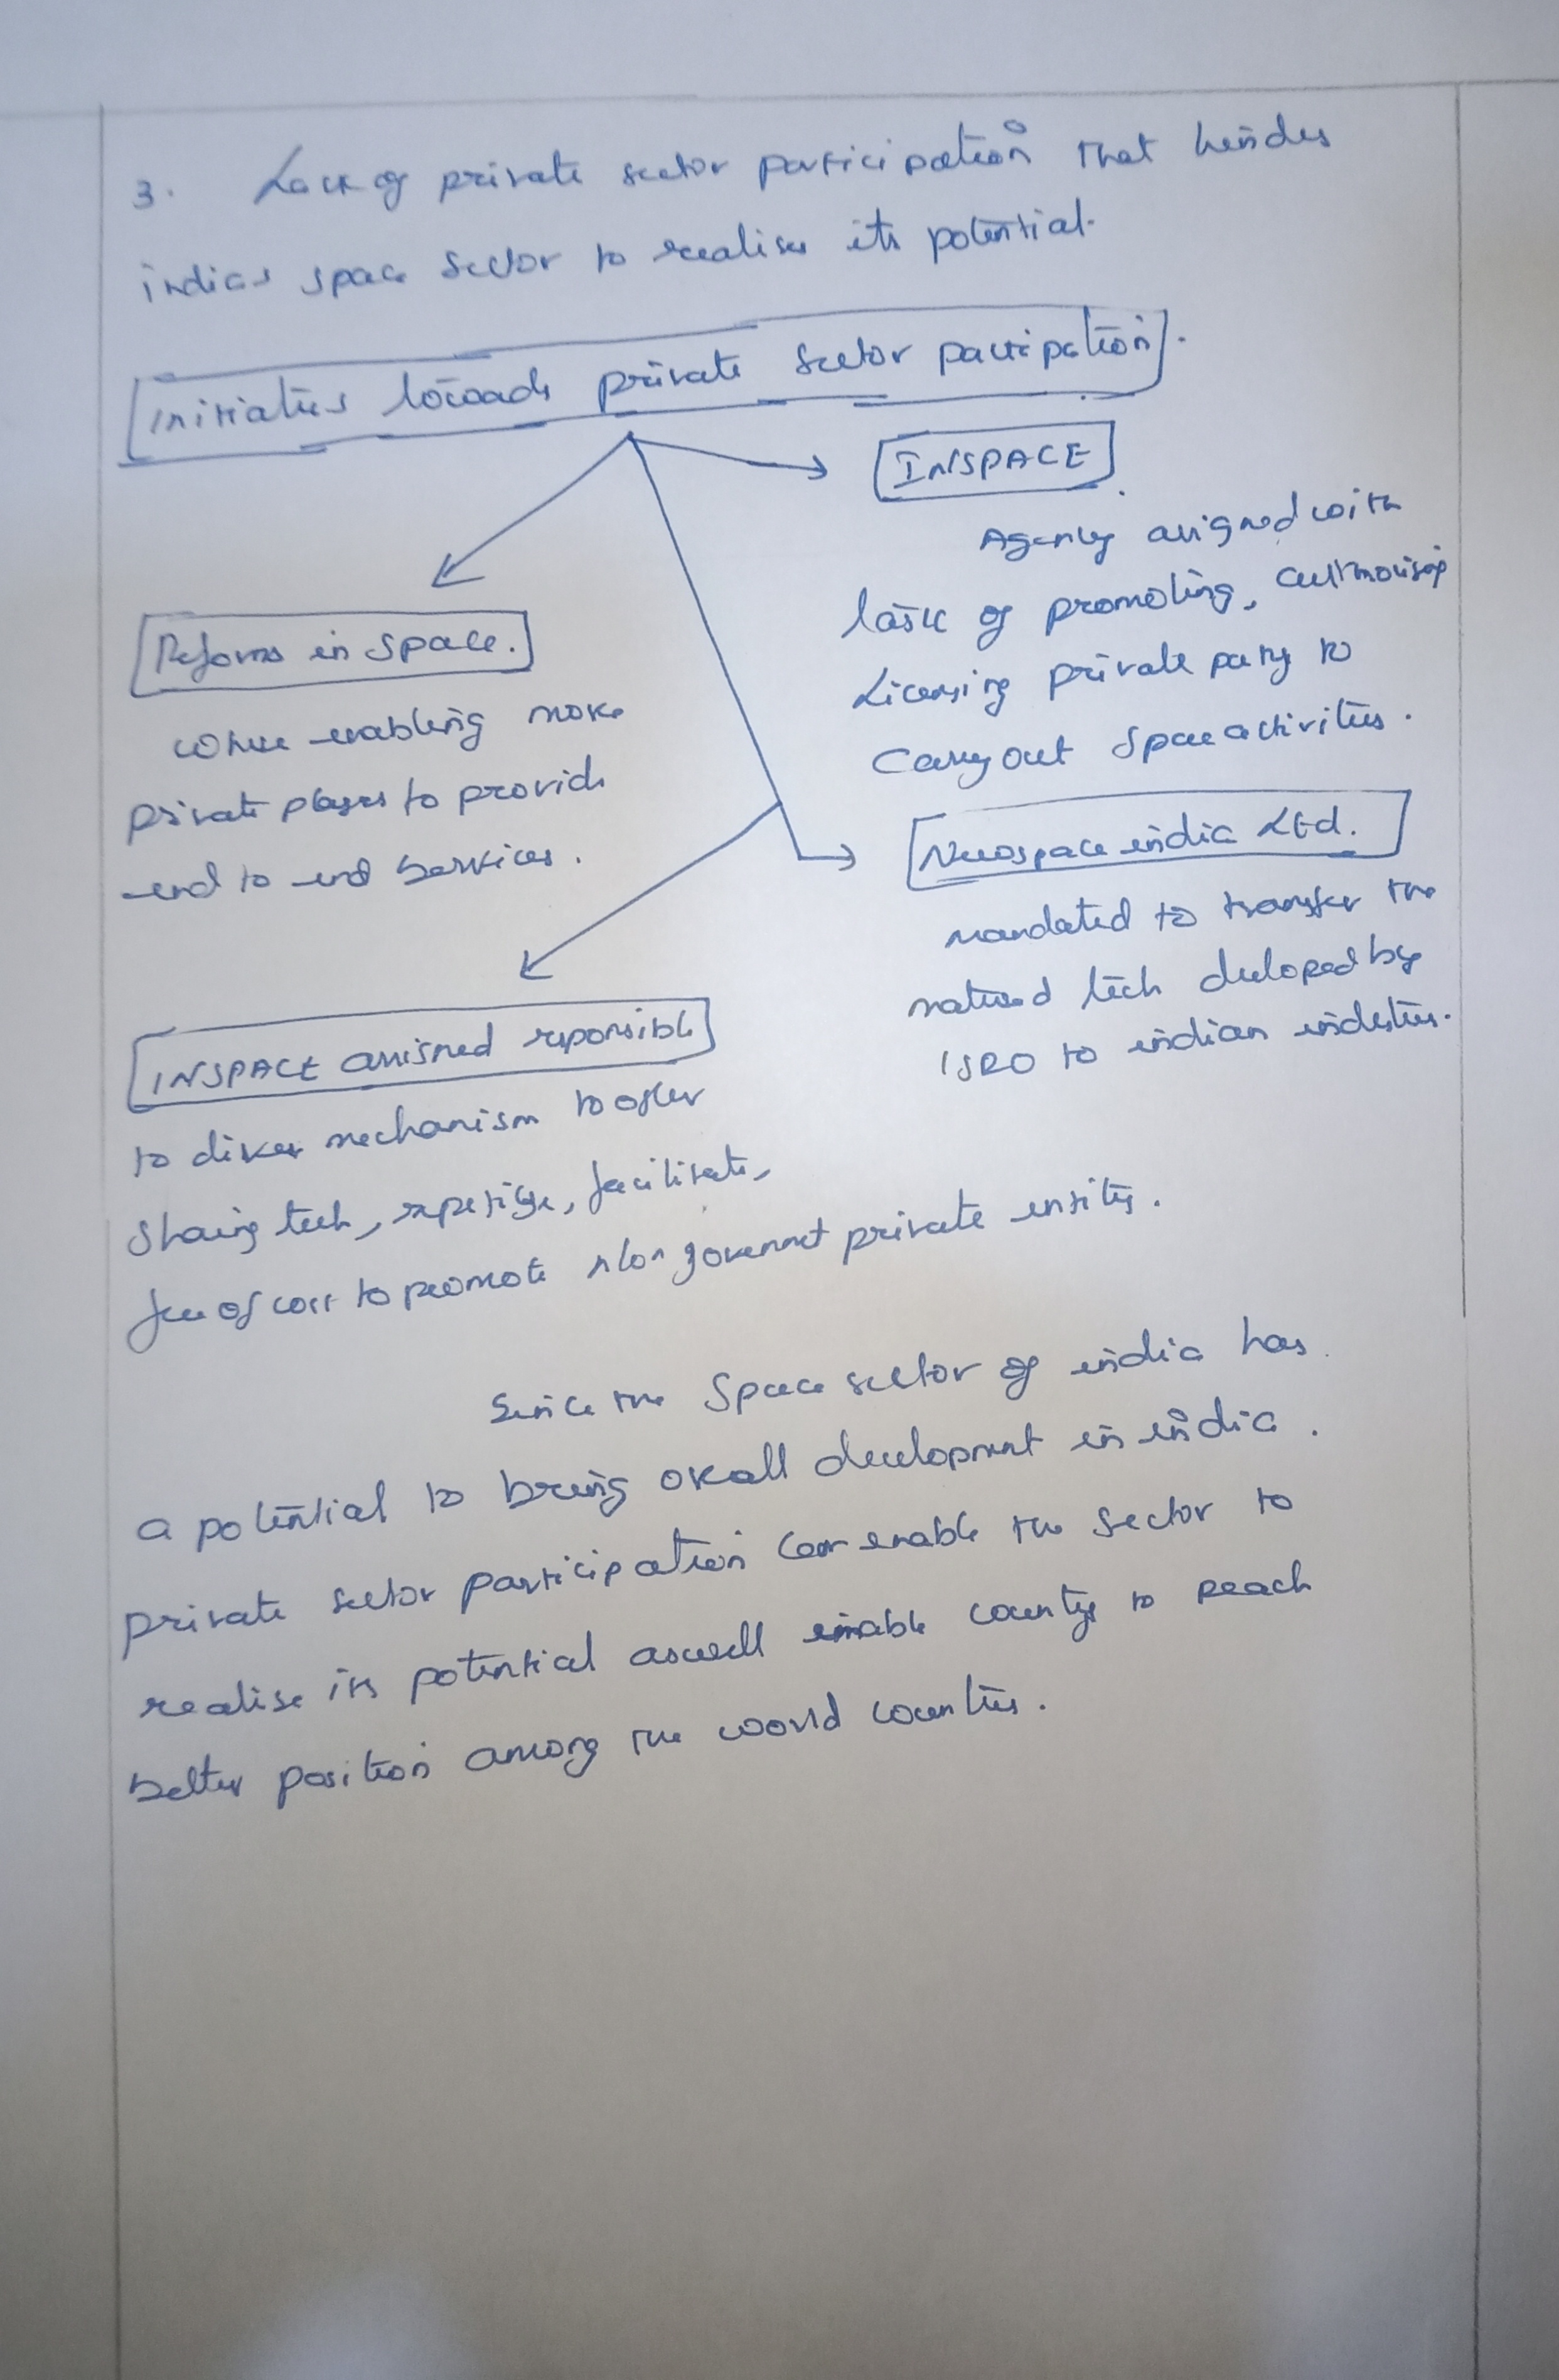 3. Lack of private sector participation that hindes
indias space sector to realise its potential.
Initiatives towards private sector participation.
INSPACE
Agency assigned with
task of promoting, authorising
Licensing private party to
Carry out space activities.
Reforms in space.
where enabling more
private players to provide
end to end services.
Newspace india Ltd.
mandated to transfer the
matured tech developed by
ISRO to indian industries.
INSPACE assigned responsible
to mechanism to offer
sharing tech, expertise, facilitate,
free of cost to promote Non government private entity.
Since the Space sector of india has
a potential to bring overall development in india.
private sector participation can enable the sector to
realise its potential aswell enable country to reach
better position among the world countries.